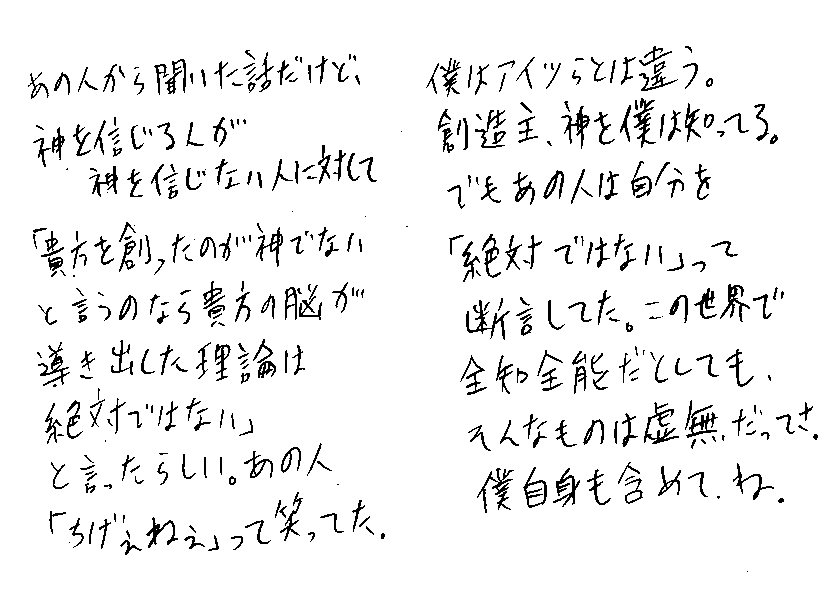 あの人から聞いた話だけど、
神を信じる人が
神を信じない人に対して
「貴方を創ったのが神でない
と言うのなら貴方の脳が
導き出した理論は
絶対ではない」
と言ったらしい。あの人
「ちげぇねぇ」って笑ってた.
僕はアイツらとは違う。
創造主、神を僕は知ってる。
でもあの人は自分を
「絶対ではない」って
断言してた。この世界で
全知全能だとしても、
そんなものは虚無だってさ.
僕自身も含めて、ね.